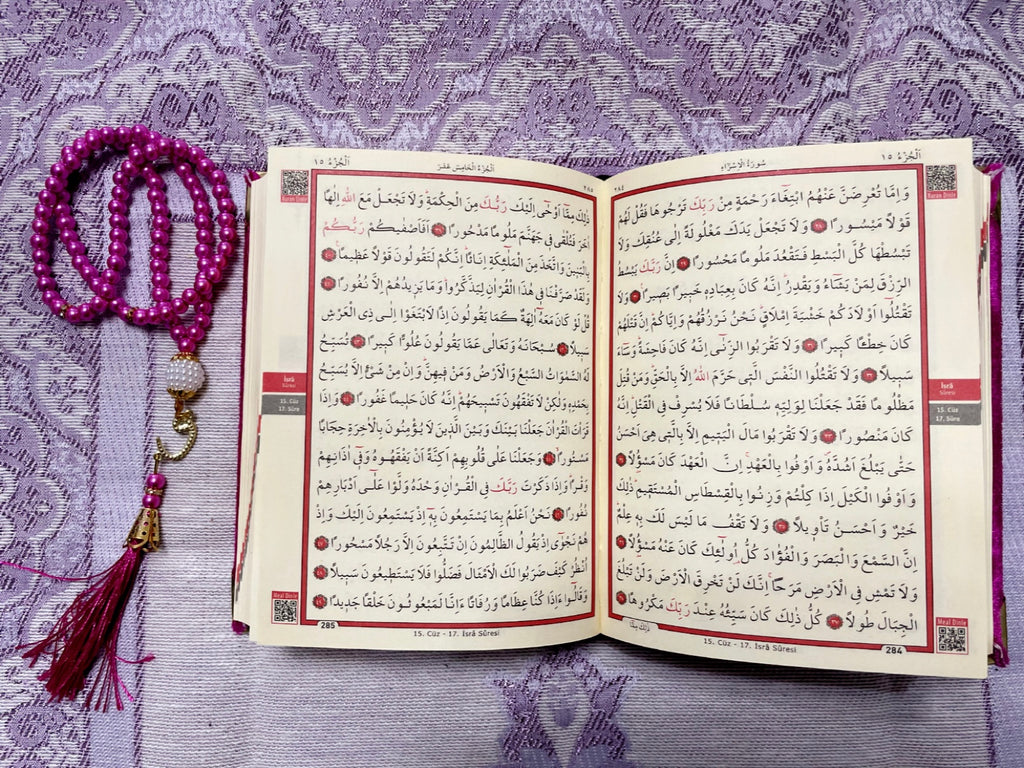 اَلْجُزْءُ ١٥
سُورَةُ الْاِسْرَاءِ
٢٨٤
Kuran Dinle
وَاِمَّا تُعْرِضَنَّ عَنْهُمُ ابْتِغَٓاءَ رَحْمَةٍ مِنْ رَبِّكَ تَرْجُوهَا فَقُلْ لَهُمْ
قَوْلاً مَيْسُورًا ﴿٢٨﴾ وَلَا تَجْعَلْ يَدَكَ مَغْلُولَةً اِلٰى عُنُقِكَ وَلَا
تَبْسُطْهَا كُلَّ الْبَسْطِ فَتَقْعُدَ مَلُومًا مَحْسُورًا ﴿٢٩﴾ اِنَّ رَبَّكَ يَبْسُطُ
الرِّزْقَ لِمَنْ يَشَٓاءُ وَيَقْدِرُ اِنَّهُ كَانَ بِعِبَادِهِ خَبِيرًا بَصِيرًا ﴿٣٠﴾ وَلَا
تَقْتُلُٓوا اَوْلَادَكُمْ خَشْيَةَ اِمْلَاقٍ نَحْنُ نَرْزُقُهُمْ وَاِيَّاكُمْ اِنَّ قَتْلَهُمْ
كَانَ خِطْـًٔا كَبِيرًا ﴿٣١﴾ وَلَا تَقْرَبُوا الزِّنٰٓى اِنَّهُ كَانَ فَاحِشَةً وَسَٓاءَ
سَبِيلاً ﴿٣٢﴾ وَلَا تَقْتُلُوا النَّفْسَ الَّتِي حَرَّمَ اللّٰهُ اِلَّا بِالْحَقِّ وَمَنْ قُتِلَ
مَظْلُومًا فَقَدْ جَعَلْنَا لِوَلِيِّهِ سُلْطَانًا فَلَا يُسْرِفْ فِي الْقَتْلِ اِنَّهُ
كَانَ مَنْصُورًا ﴿٣٣﴾ وَلَا تَقْرَبُوا مَالَ الْيَتِيمِ اِلَّا بِالَّتِي هِيَ اَحْسَنُ
حَتّٰى يَبْلُغَ اَشُدَّهُ وَاَوْفُوا بِالْعَهْدِ اِنَّ الْعَهْدَ كَانَ مَسْؤُلاً ﴿٣٤﴾
وَاَوْفُوا الْكَيْلَ اِذَا كِلْتُمْ وَزِنُوا بِالْقِسْطَاسِ الْمُسْتَقِيمِ ذٰلِكَ
خَيْرٌ وَاَحْسَنُ تَأْوِيلاً ﴿٣٥﴾ وَلَا تَقْفُ مَا لَيْسَ لَكَ بِهِ عِلْمٌ
اِنَّ السَّمْعَ وَالْبَصَرَ وَالْفُؤَادَ كُلُّ اُولٰٓئِكَ كَانَ عَنْهُ مَسْؤُلاً ﴿٣٦﴾
وَلَا تَمْشِ فِي الْاَرْضِ مَرَحًا اِنَّكَ لَنْ تَخْرِقَ الْاَرْضَ وَلَنْ تَبْلُغَ
الْجِبَالَ طُولاً ﴿٣٧﴾ كُلُّ ذٰلِكَ كَانَ سَيِّئُهُ عِنْدَ رَبِّكَ مَكْرُوهًا ﴿٣٨﴾
ذٰلِكَ مِمَّٓا
İsrâ
Sûresi
15. Cüz
17. Sûre
Meal Dinle
15. Cüz - 17. İsrâ Sûresi
284
اَلْجُزْءُ الْخَامِسُ عَشَرَ
اَلْجُزْءُ ١٥
٢٨٥
Kuran Dinle
ذٰلِكَ مِمَّٓا اَوْحٰٓى اِلَيْكَ رَبُّكَ مِنَ الْحِكْمَةِ وَلَا تَجْعَلْ مَعَ اللّٰهِ اِلٰهًا
اٰخَرَ فَتُلْقٰى فِي جَهَنَّمَ مَلُومًا مَدْحُورًا ﴿٣٩﴾ اَفَاَصْفٰيكُمْ رَبُّكُمْ
بِالْبَنِينَ وَاتَّخَذَ مِنَ الْمَلٰٓئِكَةِ اِنَاثًا اِنَّكُمْ لَتَقُولُونَ قَوْلاً عَظِيمًا ﴿٤٠﴾
وَلَقَدْ صَرَّفْنَا فِي هٰذَا الْقُرْاٰنِ لِيَذَّكَّرُوا وَمَا يَزِيدُهُمْ اِلَّا نُفُورًا ﴿٤١﴾
قُلْ لَوْ كَانَ مَعَهُٓ اٰلِهَةٌ كَمَا يَقُولُونَ اِذًا لَابْتَغَوْا اِلٰى ذِي الْعَرْشِ
سَبِيلاً ﴿٤٢﴾ سُبْحَانَهُ وَتَعَالٰى عَمَّا يَقُولُونَ عُلُوًّا كَبِيرًا ﴿٤٣﴾ تُسَبِّحُ
لَهُ السَّمٰوَاتُ السَّبْعُ وَالْاَرْضُ وَمَنْ فِيهِنَّ وَاِنْ مِنْ شَيْءٍ اِلَّا يُسَبِّحُ
بِحَمْدِهِ وَلٰكِنْ لَا تَفْقَهُونَ تَسْبِيحَهُمْ اِنَّهُ كَانَ حَلِيمًا غَفُورًا ﴿٤٤﴾ وَاِذَا
قَرَأْتَ الْقُرْاٰنَ جَعَلْنَا بَيْنَكَ وَبَيْنَ الَّذِينَ لَا يُؤْمِنُونَ بِالْاٰخِرَةِ حِجَابًا
مَسْتُورًا ﴿٤٥﴾ وَجَعَلْنَا عَلٰى قُلُوبِهِمْ اَكِنَّةً اَنْ يَفْقَهُوهُ وَفِٓي اٰذَانِهِمْ
وَقْرًا وَاِذَا ذَكَرْتَ رَبَّكَ فِي الْقُرْاٰنِ وَحْدَهُ وَلَّوْا عَلٰٓى اَدْبَارِهِمْ
نُفُورًا ﴿٤٦﴾ نَحْنُ اَعْلَمُ بِمَا يَسْتَمِعُونَ بِهِٓ اِذْ يَسْتَمِعُونَ اِلَيْكَ وَاِذْ
هُمْ نَجْوٰٓى اِذْ يَقُولُ الظَّالِمُونَ اِنْ تَتَّبِعُونَ اِلَّا رَجُلاً مَسْحُورًا ﴿٤٧﴾
اُنْظُرْ كَيْفَ ضَرَبُوا لَكَ الْاَمْثَالَ فَضَلُّوا فَلَا يَسْتَطِيعُونَ سَبِيلاً ﴿٤٨﴾
وَقَالُٓوا ءَاِذَا كُنَّا عِظَامًا وَرُفَاتًا ءَاِنَّا لَمَبْعُوثُونَ خَلْقًا جَدِيدًا ﴿٤٩﴾
İsrâ
Sûresi
15. Cüz
17. Sûre
Meal Dinle
285
15. Cüz - 17. İsrâ Sûresi